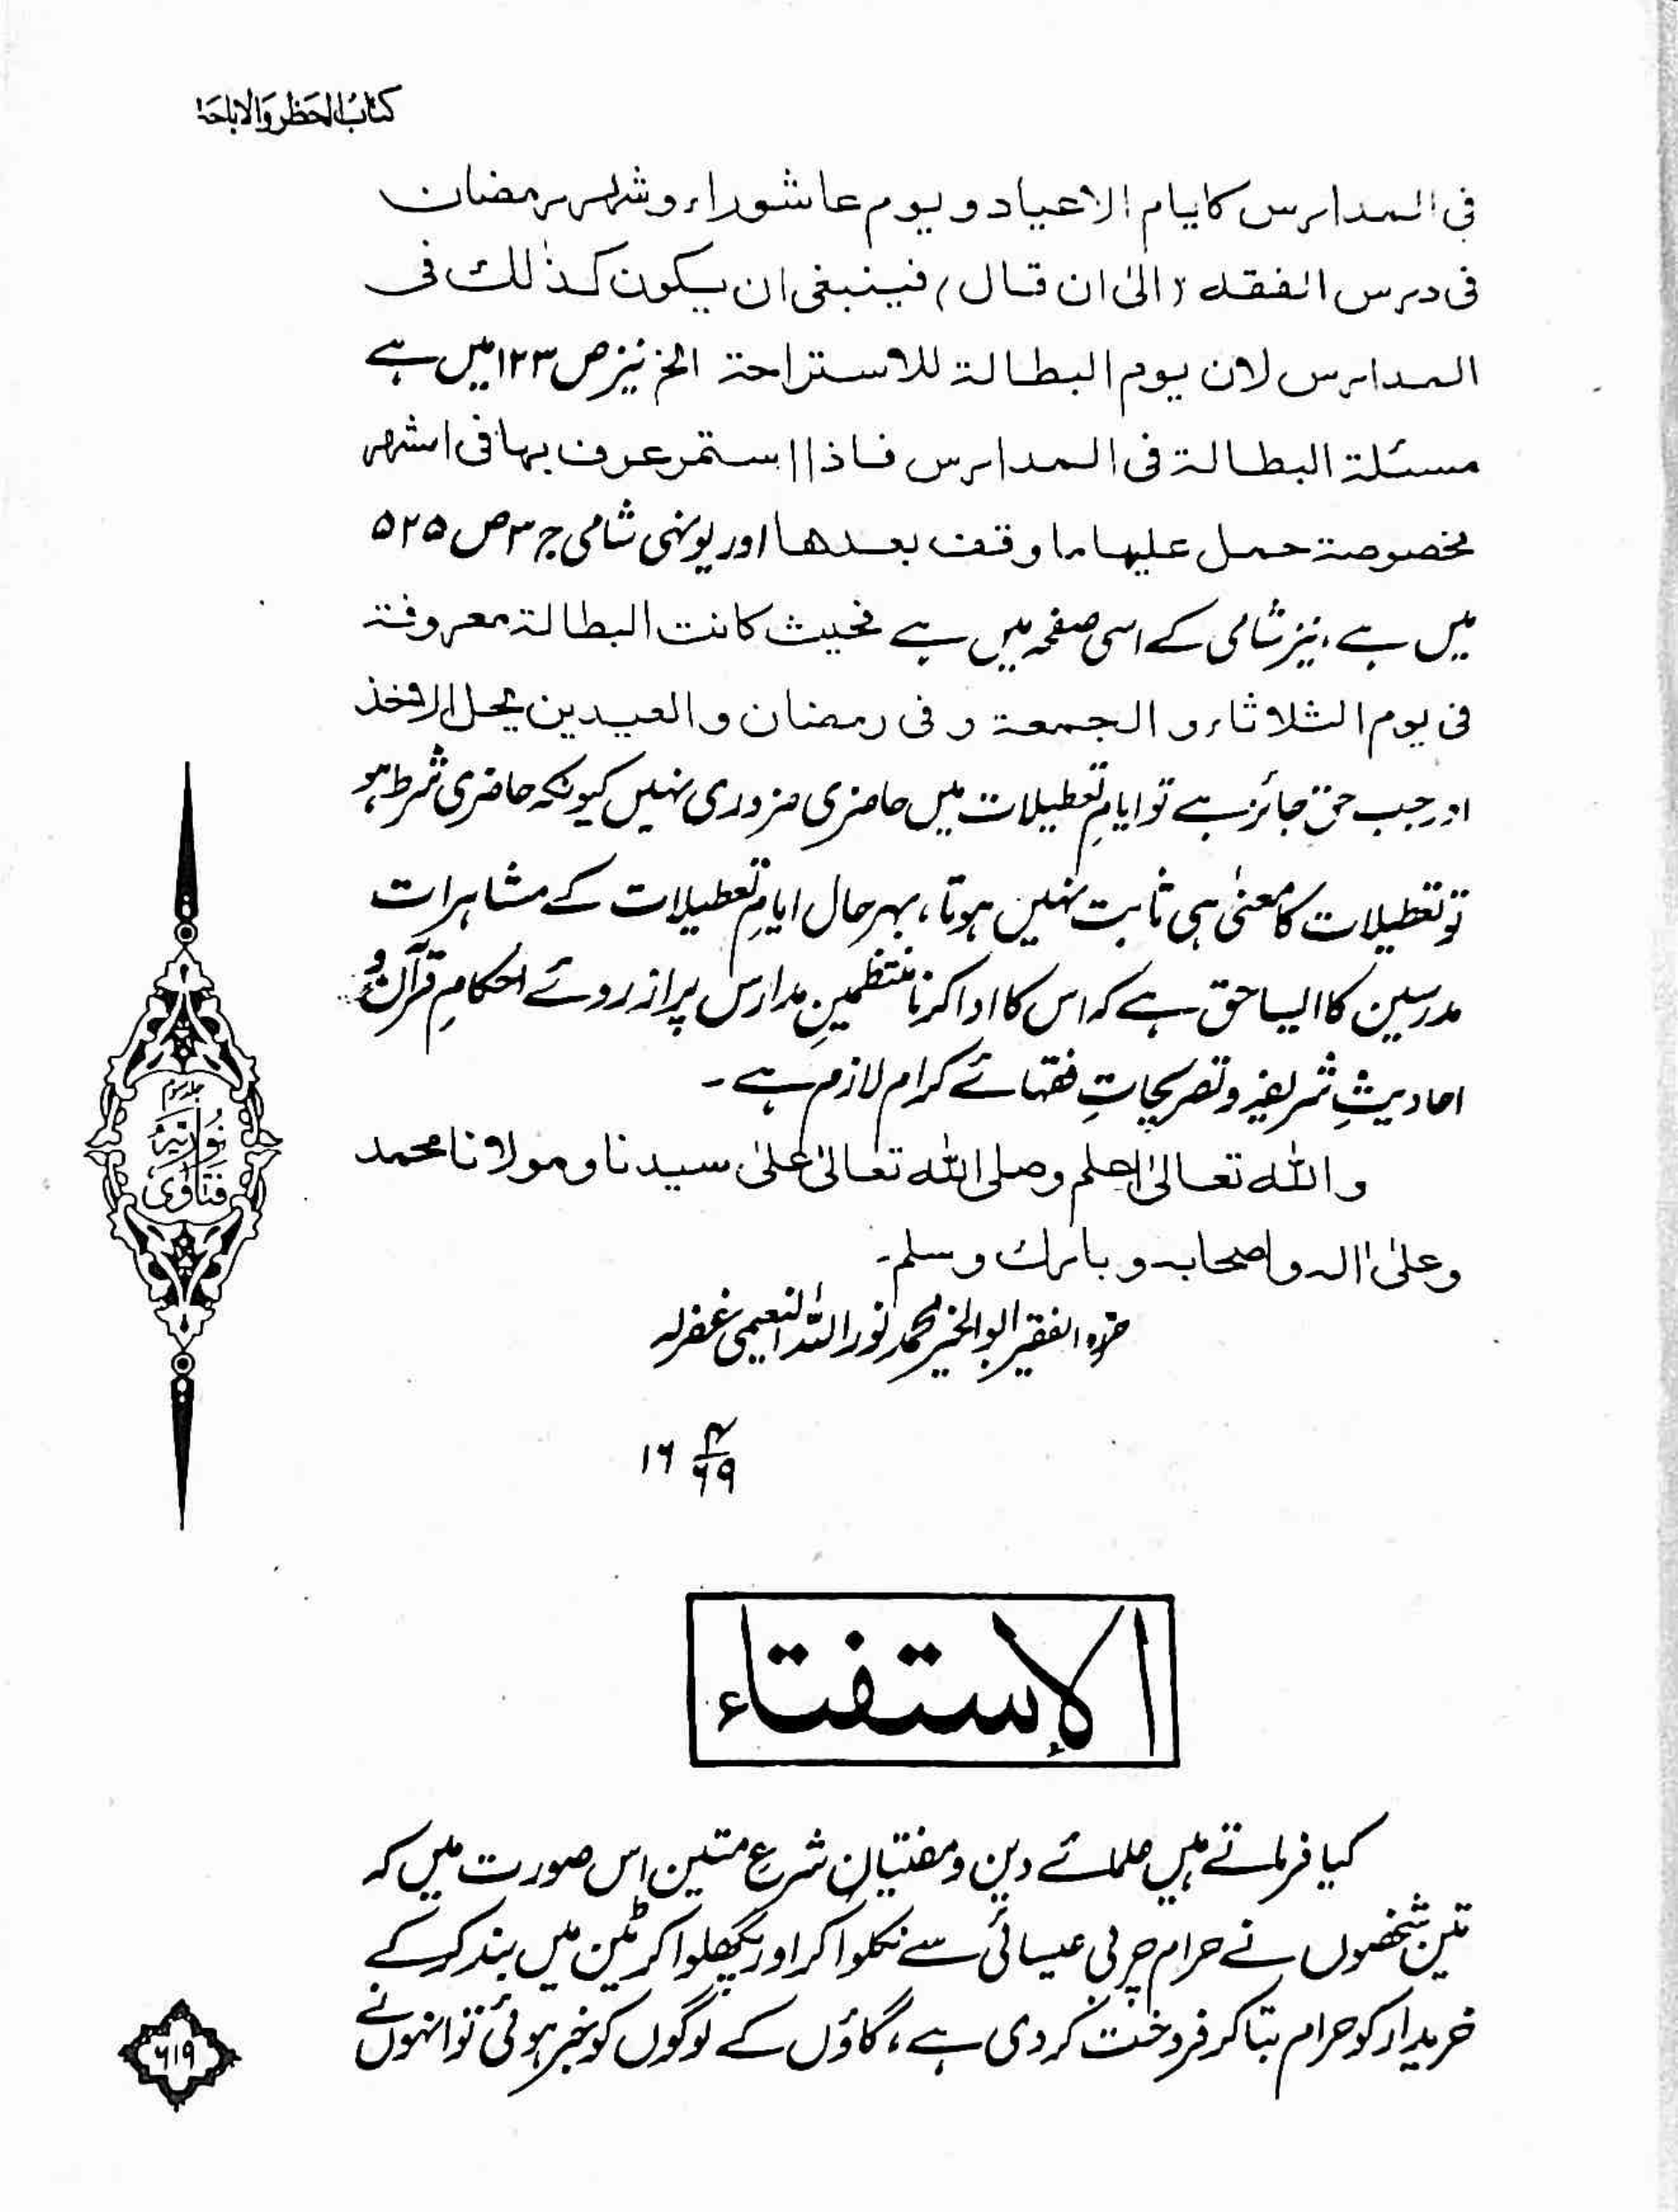 کتاب الحظر والاباحة
فی المدارس کایام الاعیاد و یوم عاشوراء و شهر رمضان
فی درس الفقه (الیٰ ان قال) فینبغی ان یکون کذٰلك فی
المدارس لان یوم البطالة للاستراحة الخ نیز ص ۱۲۳ میں ہے
مسئلة البطالة فی المدارس فاذا استمر عرف بها فی اشهر
مخصوصة حمل علیها ما وقف بعدها اور یونہی شامی ج ۳ ص ۵۲۵
میں ہے، نیز شامی کے اسی صفحہ میں ہے فحیث کانت البطالة معروفة
فی یوم الثلاثاء و الجمعة و فی رمضان و العیدین یحل الاخذ
اور جب حق جائز ہے تو ایامِ تعطیلات میں حاضری ضروری نہیں کیونکہ حاضری شرط ہو
تو تعطیلات کا معنیٰ ہی ثابت نہیں ہوتا، بہر حال ایامِ تعطیلات کے مشاہرات
مدرسین کا ایسا حق ہے کہ اس کا ادا کرنا منتظمینِ مدارس پر از روئے احکامِ قرآن و
احادیثِ شریفہ و تصریحاتِ فقہائے کرام لازم ہے۔
و الله تعالیٰ اعلم و صلی الله تعالیٰ علیٰ سیدنا و مولانا محمد
و علیٰ اٰله و اصحابه و بارك و سلم۔
حررہ الفقیر ابو الخیر محمد نور اللہ النعیمی غفرلہ
۱۶ ۴/۶۹
فتاویٰ نوریہ
الإستفتاء
کیا فرماتے ہیں علمائے دین و مفتیانِ شرع متین اس صورت میں کہ
تین شخصوں نے حرام چربی عیسائی سے نکلوا کر اور پگھلوا کر ٹین میں بند کر کے
خریدار کو حرام بتا کر فروخت کر دی ہے، گاؤں کے لوگوں کو خبر ہوئی تو انہوں نے
۶۱۹